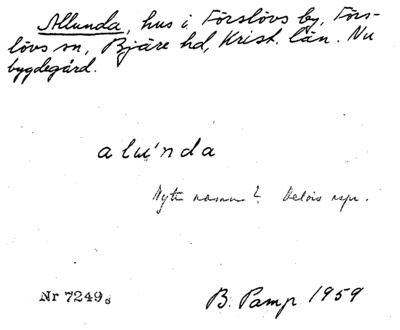 Allunda, hus i Förslövs by, Förs-
lövs sn, Bjäre hd, Krist. län. Nu
bygdegård.
alu'nda
Nytt namn? Delvis
Nr 7249
B. Pamp 1959